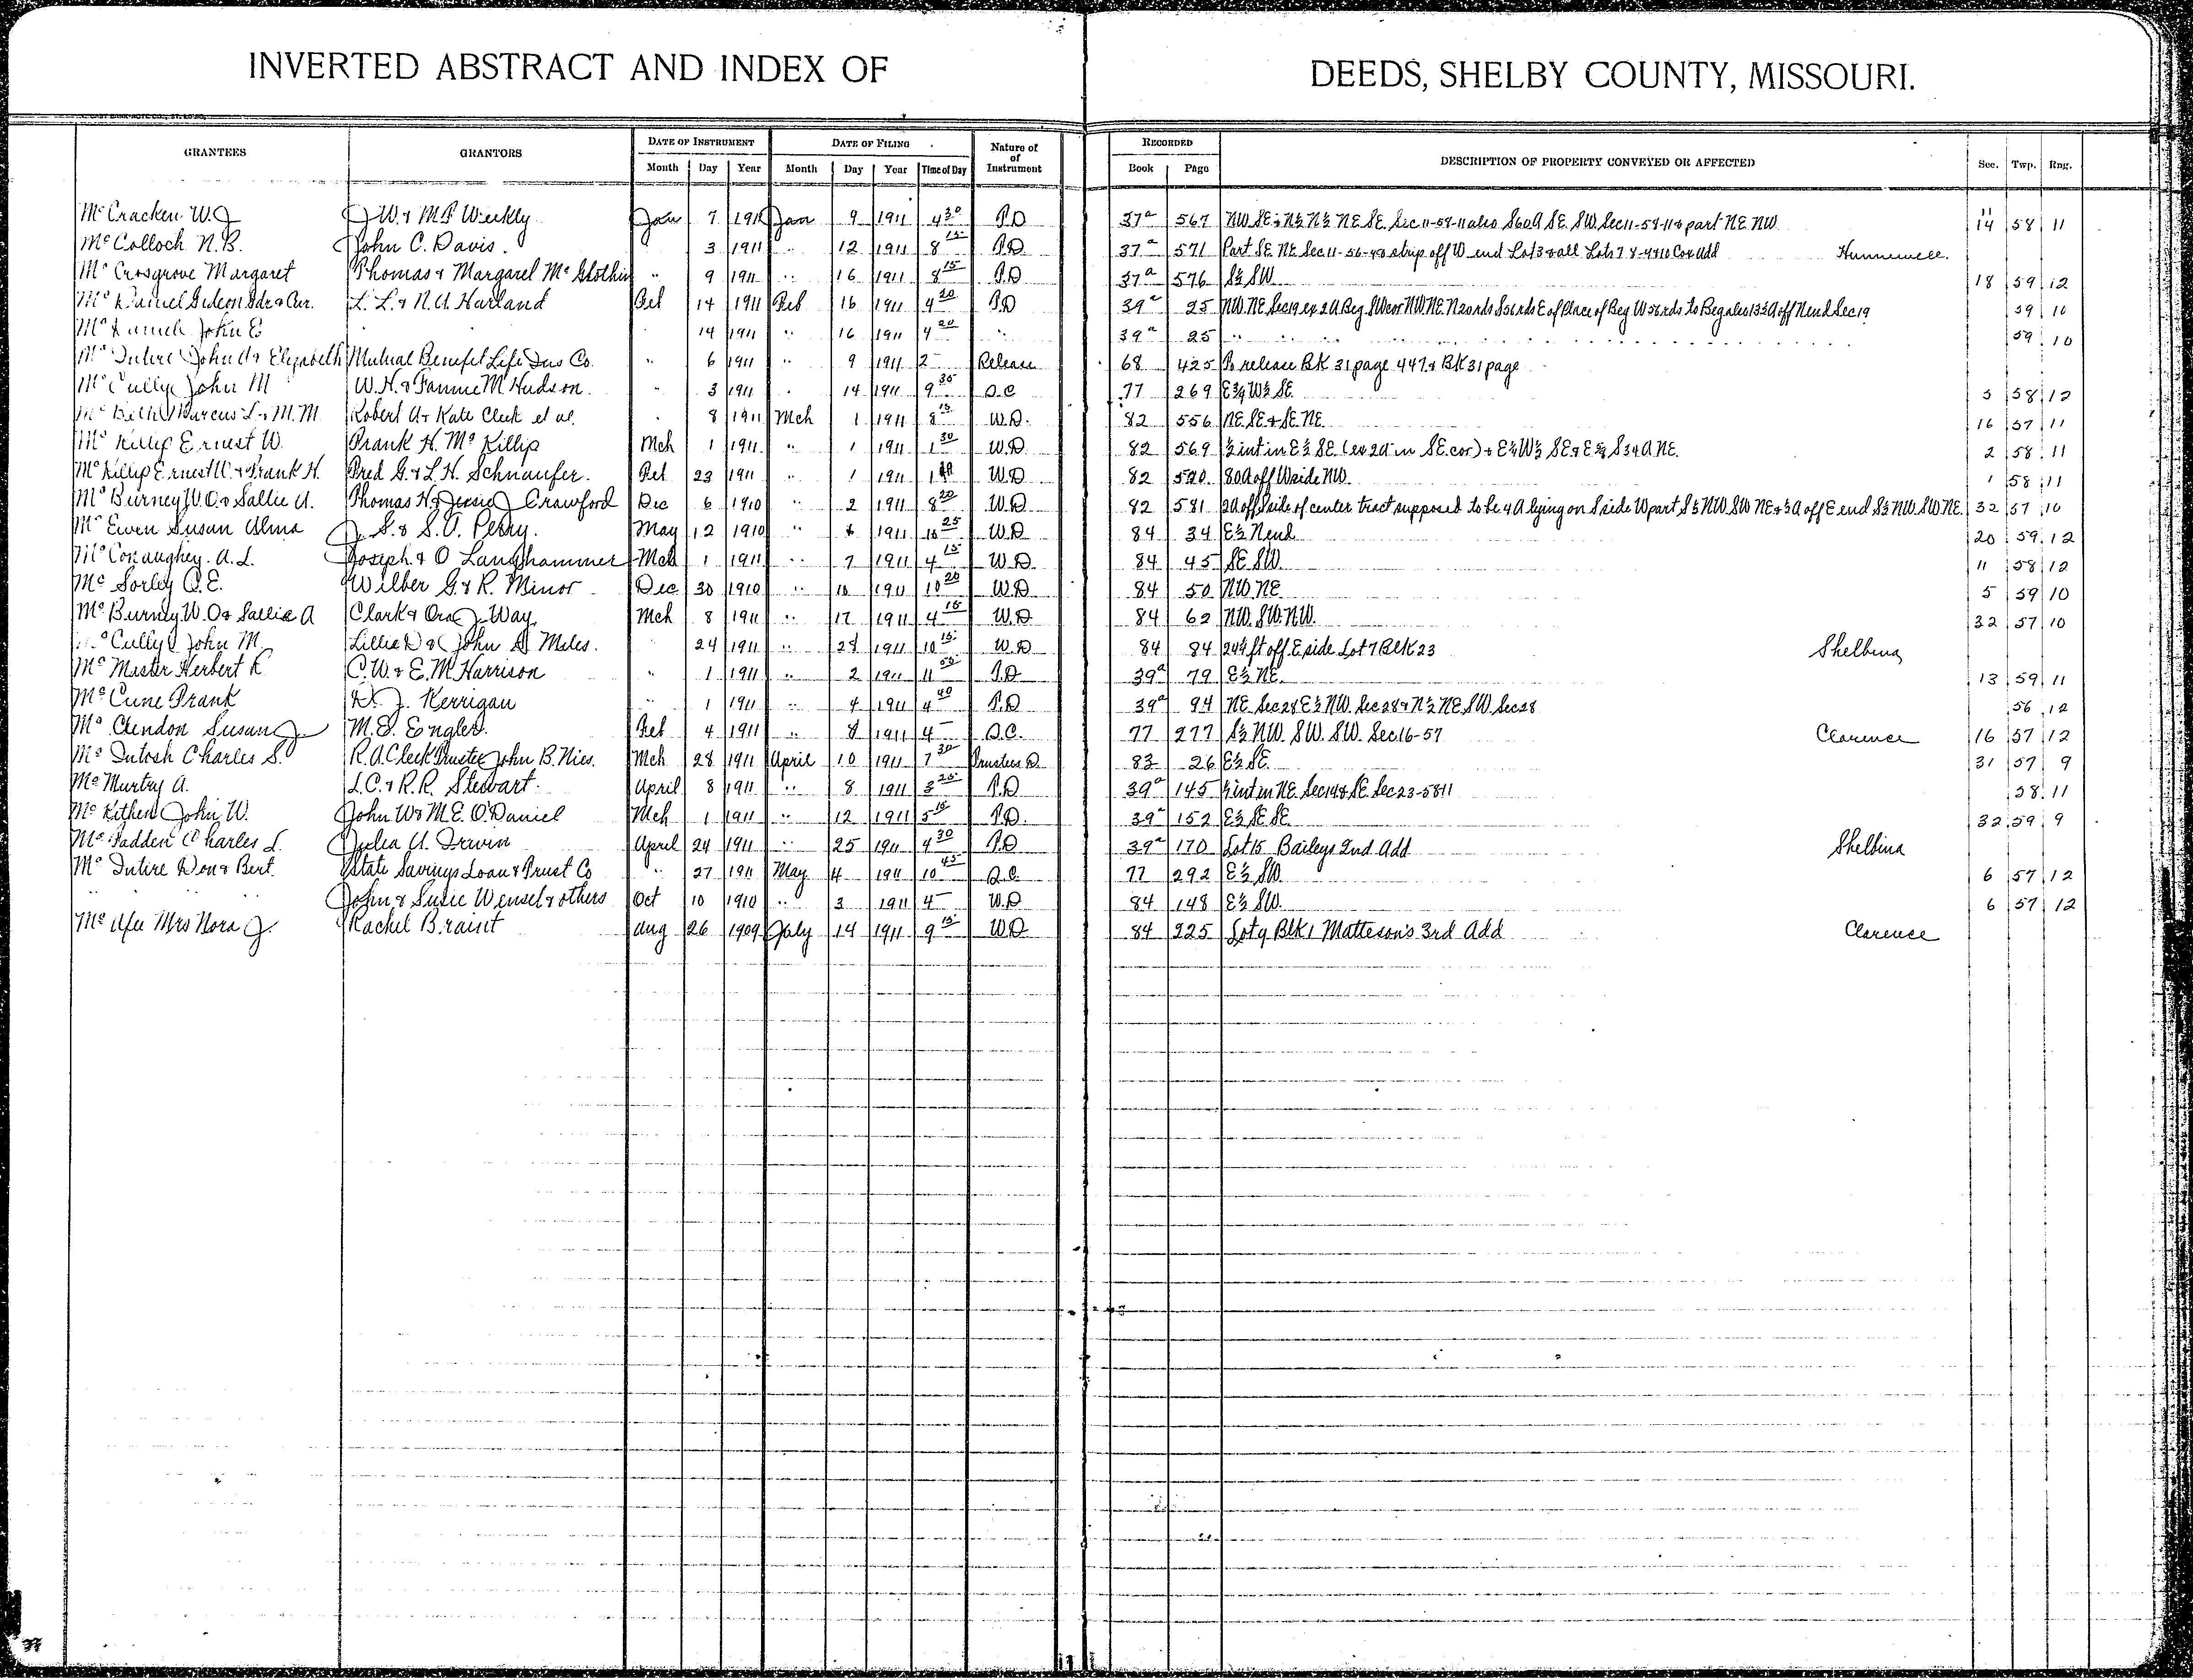 INVERTED ABSTRACT AND INDEX OF DEEDS, SHELBY COUNTY, MISSOURI.
GRANTEES GRANTORS DATE OF INSTRUMENT DATE OF FILING Nature of of Instrument RECORDED DESCRIPTION OF PROPERTY CONVEYED OR AFFECTED Sec. Twp. Rng.
Month Day Year Month Day Year Time of Day Book Page
McCracken W.J J W. & M.F Weekly Jan 7 1911 Jan 9 1911 4 30 T.D 37a 567 NW. SE. & N½ N½ NE SE. Sec 11-58-11 also S60A SE. SW. Sec 11-58-11 & part NE NW 11 14 58 11
McColloch N.B. John C. Davis. 3 1911 " 12 1911 8 15 T.D. 37a 571 Part SE. NE. Sec 11-56- strip off W end Lot 3 & all Lots 7 8-9 & 10 Cox Add Hunnewell.
McCrosgrove Margaret Thomas & Margaret McGlothin " 9 1911 " 16 1911 8 15 T.D 37a 576 S½ SW 18 59 12
McDaniel Gideon Gdr & Cur. L. L. & N.A. Harland Feb 14 1911 Feb 16 1911 4 20 T.D 39a 25 NW. NE Sec 19 ex 2A Beg SW cor NW NE N20rds S56rds E of Place of Beg W56rds to Beg also 13½A off N end Sec 19 59 10
McDaniel John E " 14 1911 " 16 1911 4 20 " 39a 25 " 59 10
McIntire John A & Elizabeth Mutual Benefit Life Ins Co. " 6 1911 " 9 1911 2 - Release 68 425 To release BK 31 page 447 & BK 31 page
McCully John M W. H. & Fannie M Hudson. " 3 1911 " 14 1911 9 35 Q.C 77 269 E¾ W½ SE. 3 58 12
Marcus L. & M. M Robert A & Kate Cleek et al. 8 1911 Mch 1 1911 8 15 W.D. 82 556 NE. SE & SE. NE. 16 57 11
McKillip Ernest W. Frank H. McKillip Mch 1 1911 " 1 1911 1 30 W.D 82 569 ½ int in E½ SE. (ex 2A in SE. cor) & E¼ W½ SE. & S34A NE. 2 58 11
McKillip Ernest W. & Frank H. Fred G. & L. H. Schnaufer. Feb 23 1911 1 1911 1 W.D 82 80A off W side NW. 1 58 11
McBurney W.O. & Sallie A. Thomas H. & Jessie J Crawford Dec 6 1910 " 2 1911 8 20 W.D 82 581 2A off S side of center tract supposed to be 4A lying on S side W part S½ NW. SW NE & ½A off E end S½ NW. SW. NE. 32 57 10
McEwen Susan Alma J. S. & S. O. Perry. May 12 1910 " 6 1911 10 25 W.D 84 34 E½ N end 20 59 12
McConaughey. A. L. Joseph & O Langhammer Mch 1 1911 " 7 1911 4 15 W.D. 84 45 SE SW. 11 58 12
McSorley O.E. Wilber G. & R. Minor Dec 30 1910 " 10 1911 10 20 W.D 84 50 NW. NE 5 59 10
McBurney W.O & Sallie A Clark & Ora J. Way. Mch 8 1911 " 17 1911 4 15 W.D 84 62 NW. SW. NW. 32 57 10
McCully John M. Lillie D & John S Miles. 24 1911 " 28 1911 10 15 W.D 84 84 24½ ft off E side Lot 7 Blk 23 Shelbina
McMaster Herbert K C. W. & E. M. Harrison " 1 1911 " 2 1911 11 50 T.D 39a 79 E½ NE. 13 59 11
McCune Frank D. J. Kerrigan " 1 1911 " 4 1911 4 40 T.D 39a 94 NE Sec 28 E½ NW. Sec 28 & N½ NE. SW Sec 28 56 12
McClendon Susan J. M. E. Engler. Feb 4 1911 " 8 1911 4 - Q.C. 77 277 S½ NW. SW. SW. Sec 16-57 Clarence 16 57 12
McIntosh Charles S. R. A. Cleek Trustee John B. Nies. Mch 28 1911 April 10 1911 7 30 Trustees D. 83 26 E½ SE. 31 57 9
McMurtry A. L.C. & R.R. Stewart. April 8 1911 " 8 1911 3 25 T.D 39a 145 ½ int in NE. Sec 14 & SE. Sec 23-58 11 58 11
McKithen John W. John W & M.E. O'Daniel Mch 1 1911 " 12 1911 5 15 T.D. 39a 152 E½ SE SE. 32 59 9
McFadden Charles L. Julia A. Irwin April 24 1911 " 25 1911 4 30 T.D 39a 170 Lot 15 Baileys 2nd Add Shelbina
McIntire Don & Bert. State Savings Loan & Trust Co " 27 1911 May 4 1911 10 45 Q.C. 77 292 E½ SW. 6 57 12
" " John & Susie Wensel & others Oct 10 1910 " 3 1911 4 - W.D 84 148 E½ SW. 6 57 12
McAfee Mrs Nora J. Rachel Braint Aug 26 1909 July 14 1911 9 15 W.D 84 225 Lot 9 Blk 1 Matteson's 3rd Add Clarence